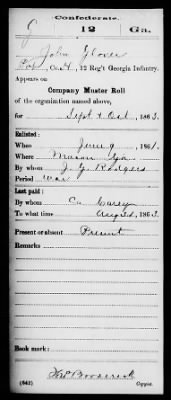 Confederate.
G 12 Ga.
John Glover
Co. H, 12 Reg't Georgia Infantry.
Appears on
Company Muster Roll
of the organization named above,
for Sept & Oct, 1863.
Enlisted:
When June 9, 1861.
Where Macon Ga
By whom J. G. Rodgers
Period War
Last paid:
By whom Ca Carey
To what time Aug 31, 1863.
Present or absent Present
Remarks:
Book mark:
(642) Copyist.